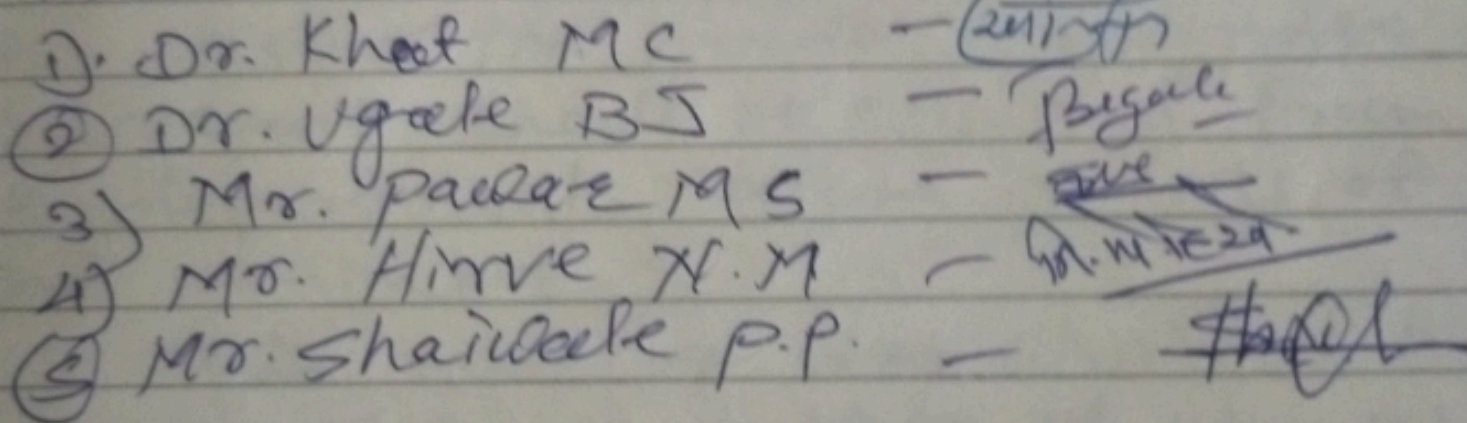 1). Dr. Khot MC -
2 Dr. Ugale BJ - Bugale
3) Mr. Pawar MS -
4) Mr. Hirve N.M -
5 Mr. Shaiwale P.P. -